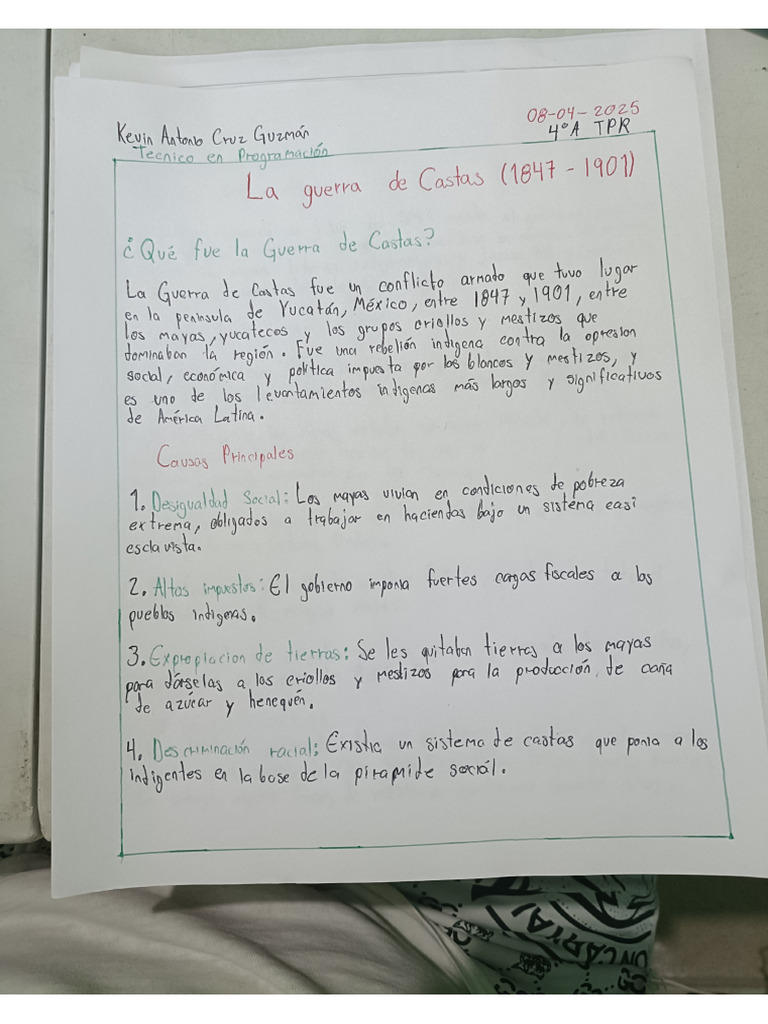 Kevin Antonio Cruz Guzmán
08-04-2025
4°A TPR
Tecnico en Programación
La guerra de Castas (1847 - 1901)
¿Qué fue la Guerra de Castas?
La Guerra de Castas fue un conflicto armado que tuvo lugar
en la peninsula de Yucatán, México, entre 1847 y 1901, entre
los mayas, yucatecos y los grupos criollos y mestizos que
dominaban la región. Fue una rebelión indigena contra la opresion
social, económica y política impuesta por los blancos y mestizos, y
es uno de los levantamientos indigenas más largos y significativos
de América Latina.
Causas Principales
1. Desigualdad Social: Los mayas vivian en condiciones de pobreza
extrema, obligados a trabajar en haciendas bajo un sistema casi
esclavista.
2. Altos impuestos: El gobierno imponia fuertes cargas fiscales a los
pueblos indigenas.
3. Expropiacion de tierras: Se les quitaban tierras a los mayas
para dárselas a los criollos y mestizos para la producción de caña
de azúcar y henequén.
4. Descriminación racial: Existia un sistema de castas que ponia a los
indigentes en la base de la piramide social.